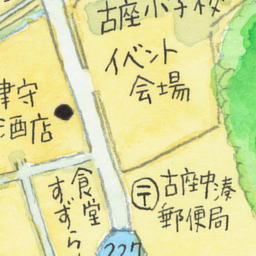 古座小学校
イベント
会場
津守
酒店
食堂
すずらん
〒 古座中湊
郵便局
227